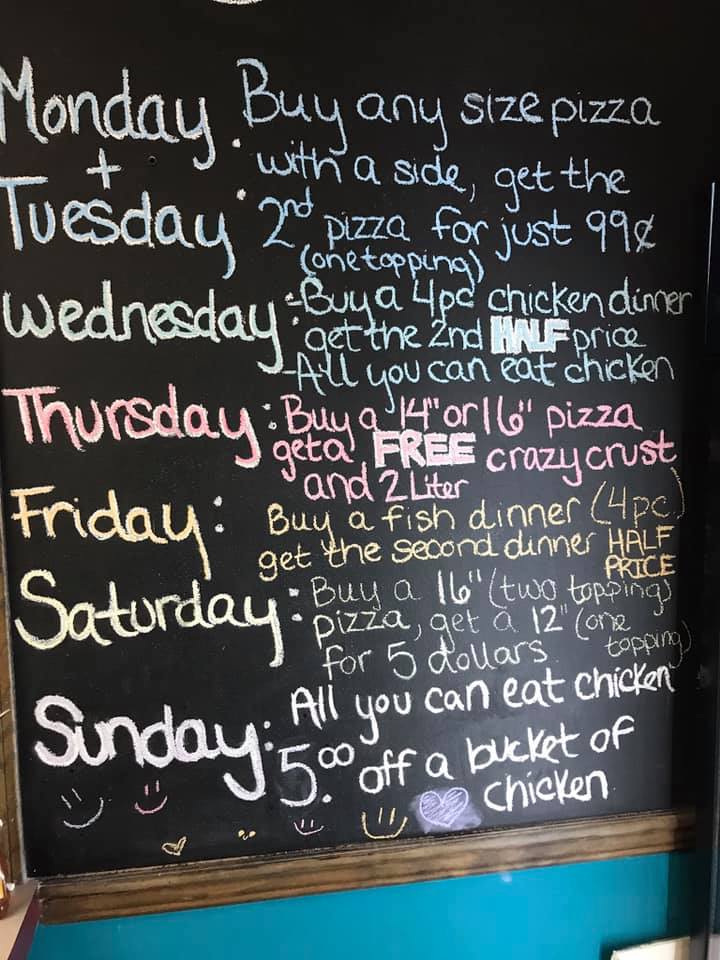 Monday
+
Tuesday : Buy any size pizza
with a side, get the
2nd pizza for just 99¢
(one topping)
Wednesday : -Buy a 4pc chicken dinner
get the 2nd HALF price
-All you can eat chicken
Thursday : Buy a 14" or 16" pizza
get a FREE crazy crust
and 2 Liter
Friday : Buy a fish dinner (4pc)
get the second dinner HALF
PRICE
Saturday : Buy a 16" (two topping)
pizza, get a 12" (one
topping)
for 5 dollars
Sunday : All you can eat chicken
5.00 off a bucket of
chicken